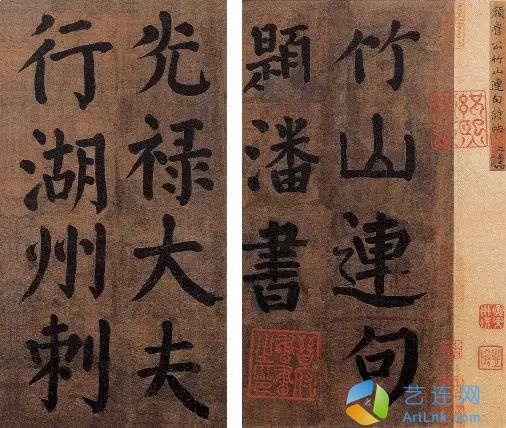 顏魯公竹山連句詩帖
竹山連句
題潘書
光禄大夫
行湖州刺
艺连网
ArtLnk.com